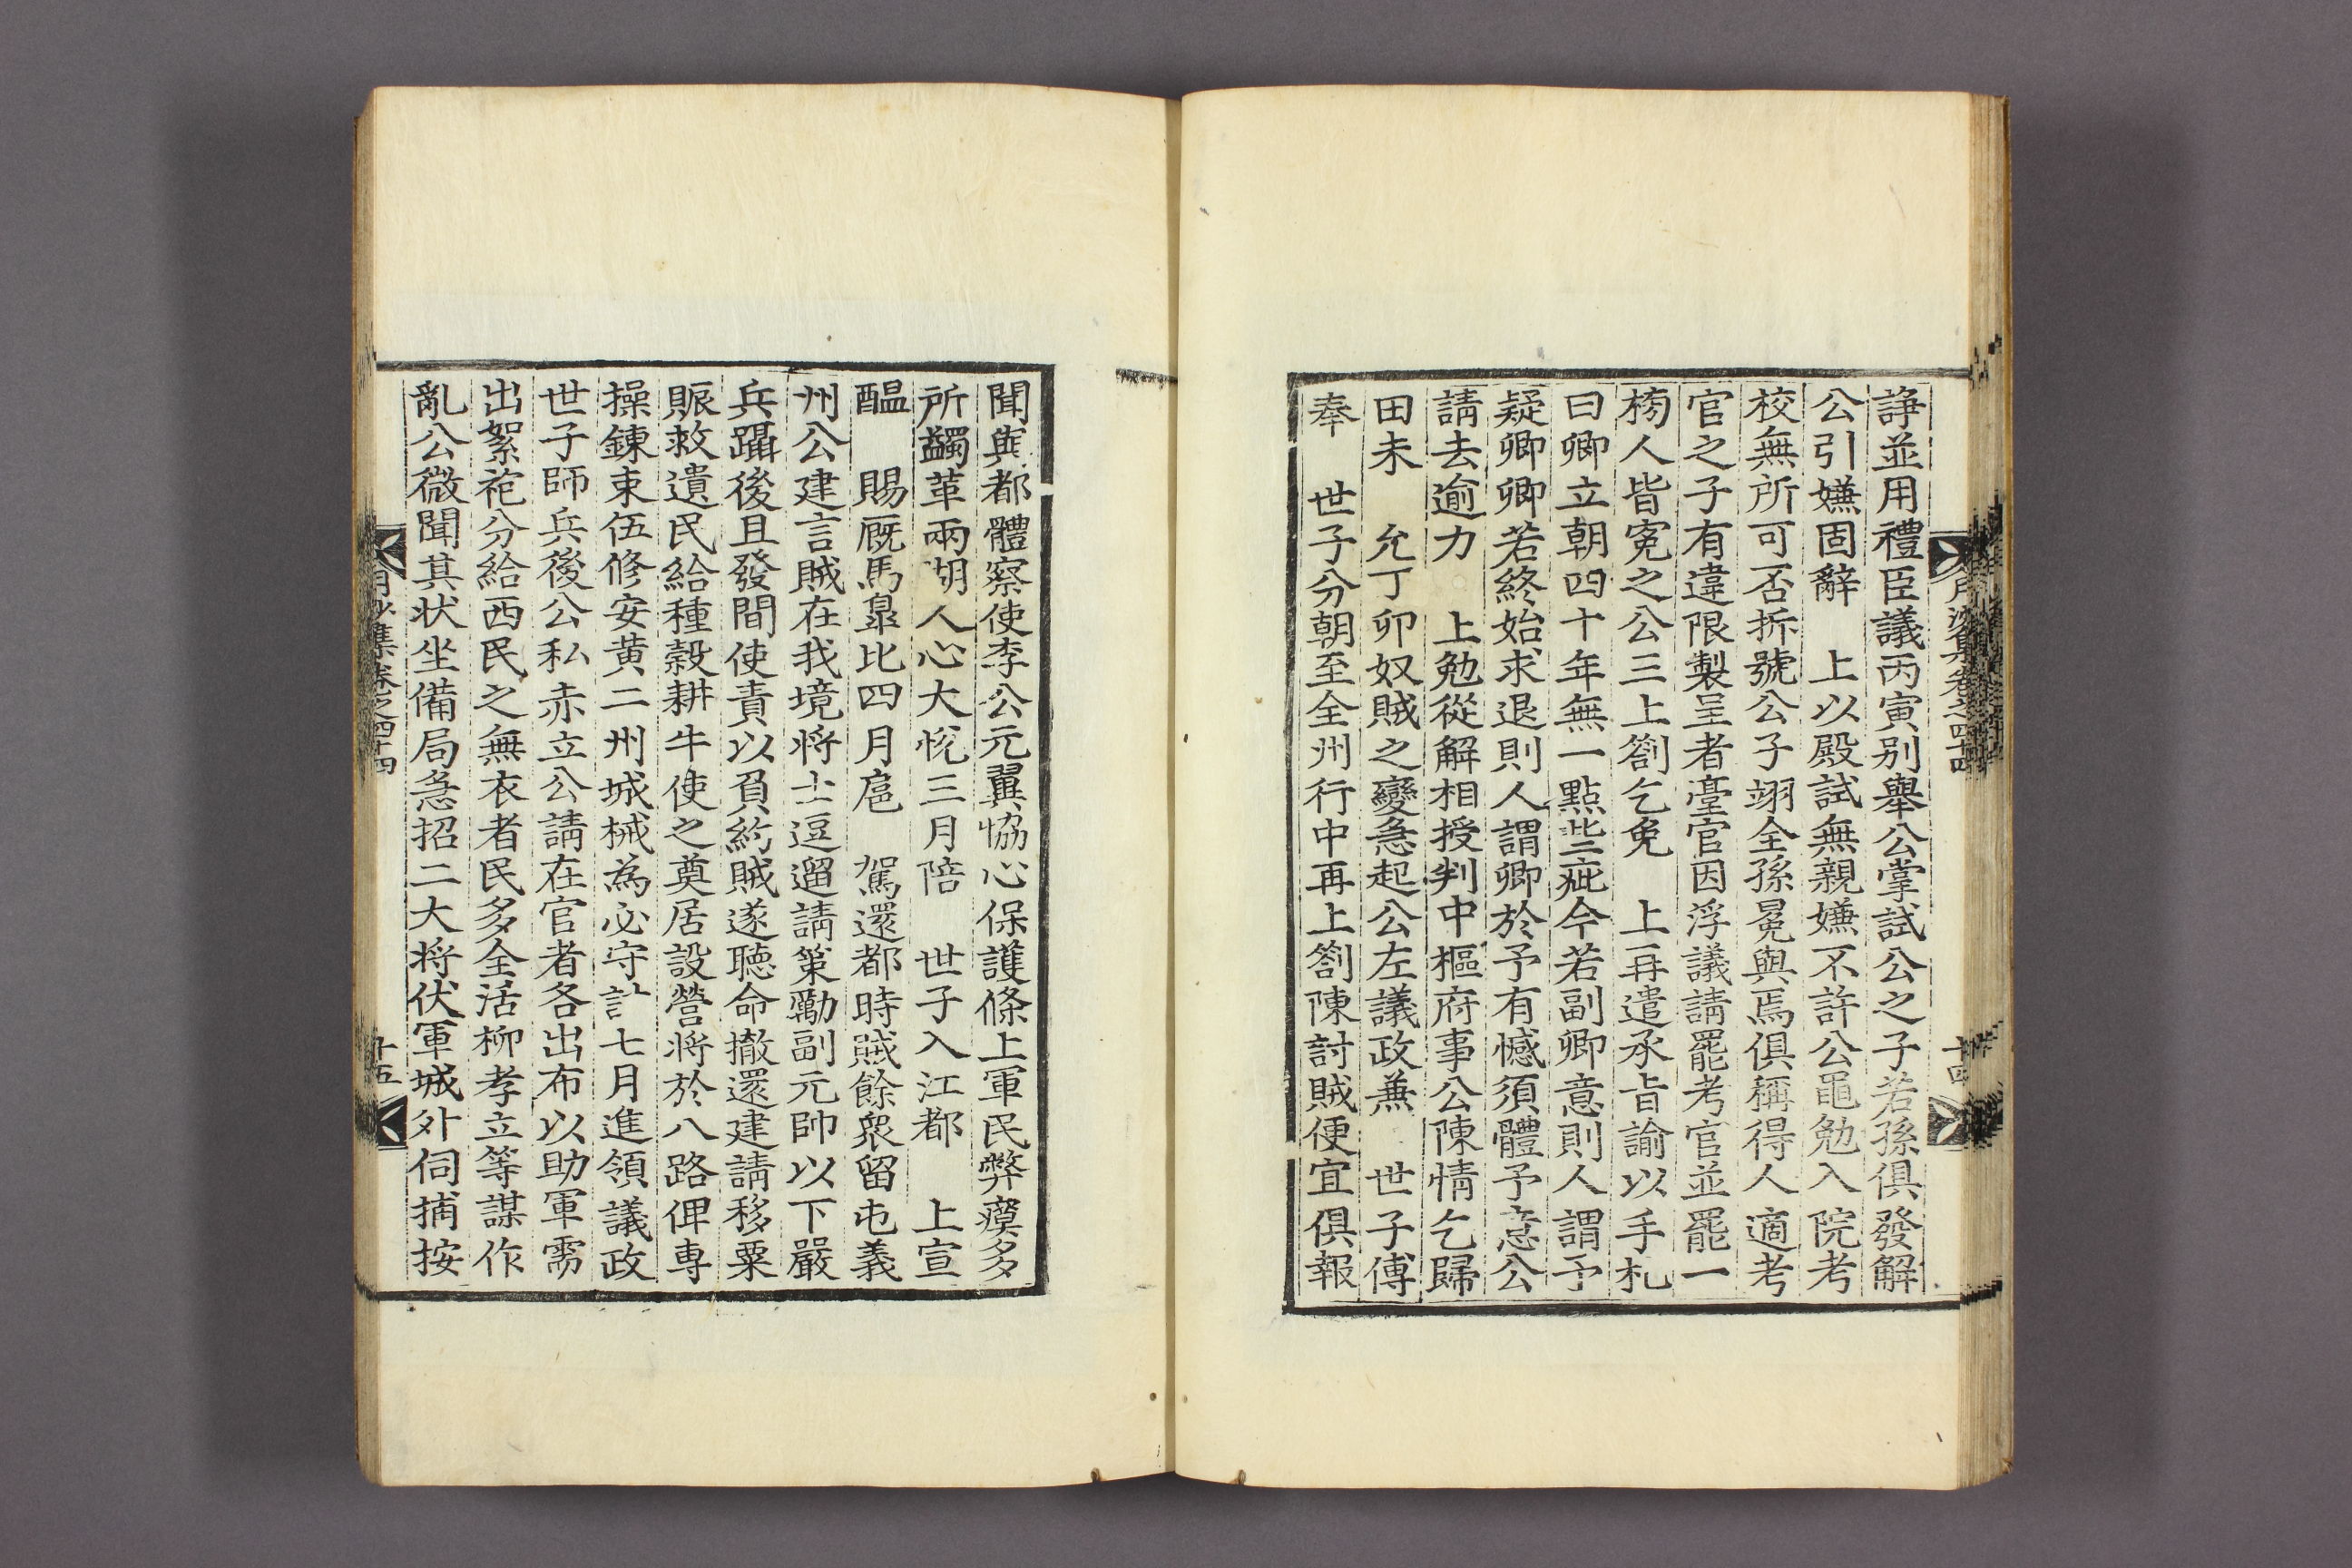 諍並用禮臣議丙寅別舉公掌試公之子若孫俱發解
公引嫌固辭　上以殿試無親嫌不許公黽勉入院考
校無所可否拆號公子翊全孫冕與焉俱稱得人適考
官之子有違限製呈者臺官因浮議請罷考官並罷一
榜人皆寃之公三上劄乞免　上再遣承旨諭以手札
曰卿立朝四十年無一點些疵今若副卿意則人謂予
疑卿卿若終始求退則人謂卿於予有憾須體予意公
請去逾力　上勉從解相授判中樞府事公陳情乞歸
田未　允丁卯奴賊之變急起公左議政兼　世子傅
奉　世子分朝至全州行中再上劄陳討賊便宜俱報
月沙集卷之四十四
十四
聞與都體察使李公元翼恊心保護條上軍民弊瘼多
所蠲革兩湖人心大悅三月陪　世子入江都　上宣
醞　賜厩馬皐比四月扈　駕還都時賊餘衆留屯義
州公建言賊在我境將士逗遛請策勵副元帥以下嚴
兵躡後且發間使責以負約賊遂聽命撤還建請移粟
賑救遺民給種穀耕牛使之奠居設營將於八路俾專
操鍊束伍修安黄二州城械為必守計七月進領議政
世子師兵後公私赤立公請在官者各出布以助軍需
出絮袍分給西民之無衣者民多全活柳孝立等謀作
亂公微聞其状坐備局急招二大將伏軍城外伺捕按
月沙集卷之四十四
十五